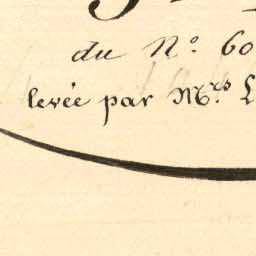 du N.° 60
levée par M.rs L